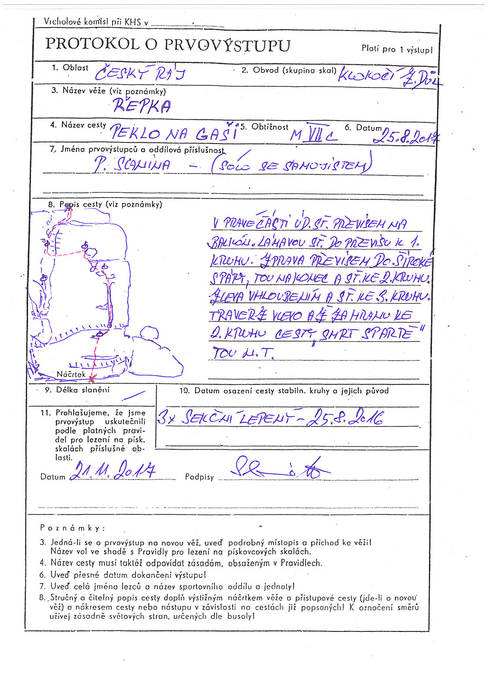 Vrcholové komisi při KHS v
PROTOKOL O PRVOVÝSTUPU
Platí pro 1 výstup!
1. Oblast ČESKÝ RÁJ 2. Obvod (skupina skal) KLOKOČÍ Z. DŮL
3. Název věže (viz poznámky)
ŘEPKA
4. Název cesty PEKLO NA GAŠI 5. Obtížnost M VII c 6. Datum 25.8.2017
7. Jména prvovýstupců a oddílová příslušnost
P. SLANINA - (SÓLO SE SAMOJISTEM)
8. Popis cesty (viz poznámky)
V PRAVÉ ČÁSTI ÚD. ST. PŘEVISEM NA
BALKÓN. LÁMAVOU ST. DO PŘEVISU K 1.
KRUHU. ZPRAVA PŘEVISEM DO ŠIROKÉ
SPÁRY, TOU NA KONEC A ST. KE 2. KRUHU.
ZLEVA VHLOUBENÍM A ST. KE 3. KRUHU.
TRAVERZ VLEVO A ZA HRANU KE
2. KRUHU CESTY "SMRT SPARTĚ"
TOU N. T.
Náčrtek
9. Délka slanění
10. Datum osazení cesty stabiln. kruhy a jejich původ
3x SEKČNÍ LEPENÝ - 25.8.2016
11. Prohlašujeme, že jsme
prvovýstup uskutečnili
podle platných pravi-
del pro lezení na písk.
skalách příslušné ob-
lasti.
Datum 21.11.2017 Podpisy
Poznámky:
3. Jedná-li se o prvovýstup na novou věž, uveď podrobný místopis a příchod ke věži!
Název vol ve shodě s Pravidly pro lezení na pískovcových skalách.
4. Název cesty musí taktéž odpovídat zásadám, obsaženým v Pravidlech.
6. Uveď přesné datum dokončení výstupu!
7. Uveď celá jména lezců a název sportovního oddílu a jednoty!
8. Stručný a čitelný popis cesty doplň výstižným náčrtkem věže a přístupové cesty (jde-li o novou
věž) a nákresem cesty nebo nástupu v závislosti na cestách již popsaných! K označení směrů
užívej zásadně světových stran, určených dle busoly!